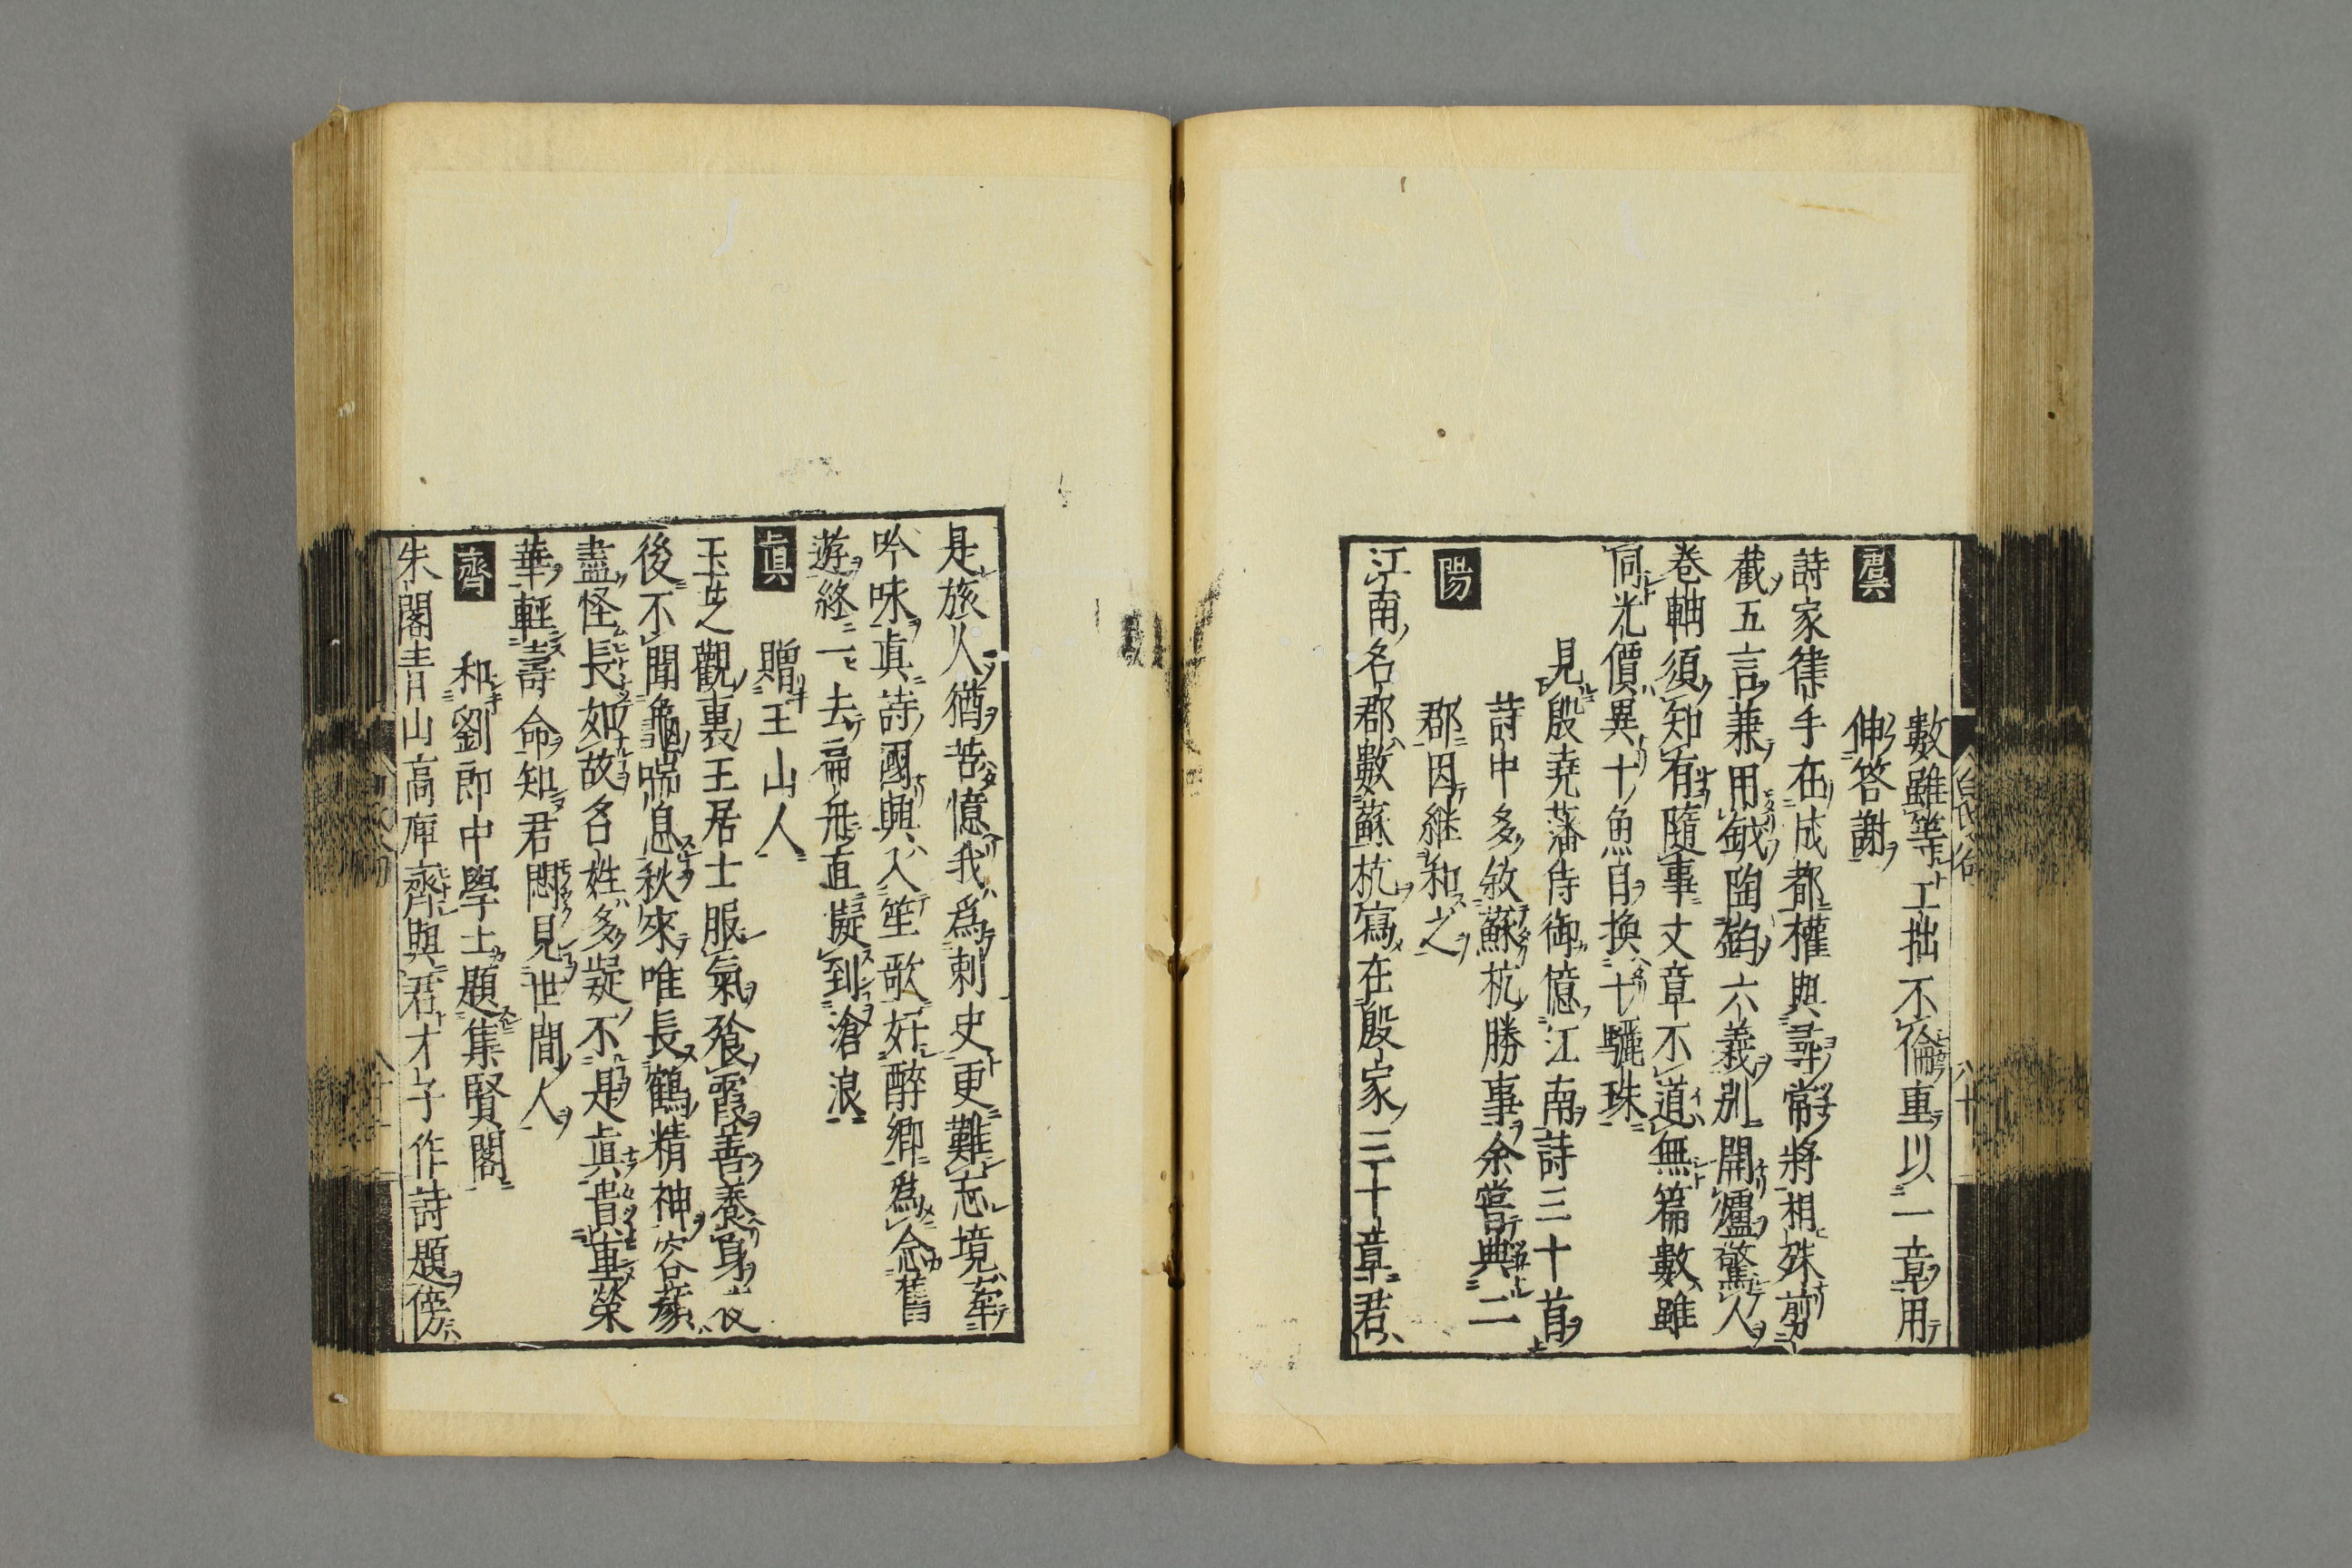 數雖等工拙不倫重以一章用
伸答謝
虞
詩家律手在成都權與尋常將相殊剪
截五言兼用鉞陶鈞六義別開爐驚人
卷軸須知有隨事文章不道無篇數雖
同光價異十魚自換十驪珠
見殷堯藩侍御憶江南詩三十首
詩中多敘蘇杭勝事余嘗典二
郡因継和之
陽
江南名郡數蘇杭寫在殷家三十章君
是旅人猶苦憶我爲刺史更難忘境牽
吟咏眞詩國興入笙歌好醉鄉爲念舊
遊終一去扁舟直擬到滄浪
眞
贈王山人
玉芝觀裏王居士服氣飡霞善養身夜
後不聞龜喘息秋來唯長鶴精神容㒵
盡怪長如故名姓多疑不是眞貴重榮
華輕壽命知君悶見世間人
齊
和劉郎中學士題集賢閣
朱閣青山高庳齊與君才子作詩題傍